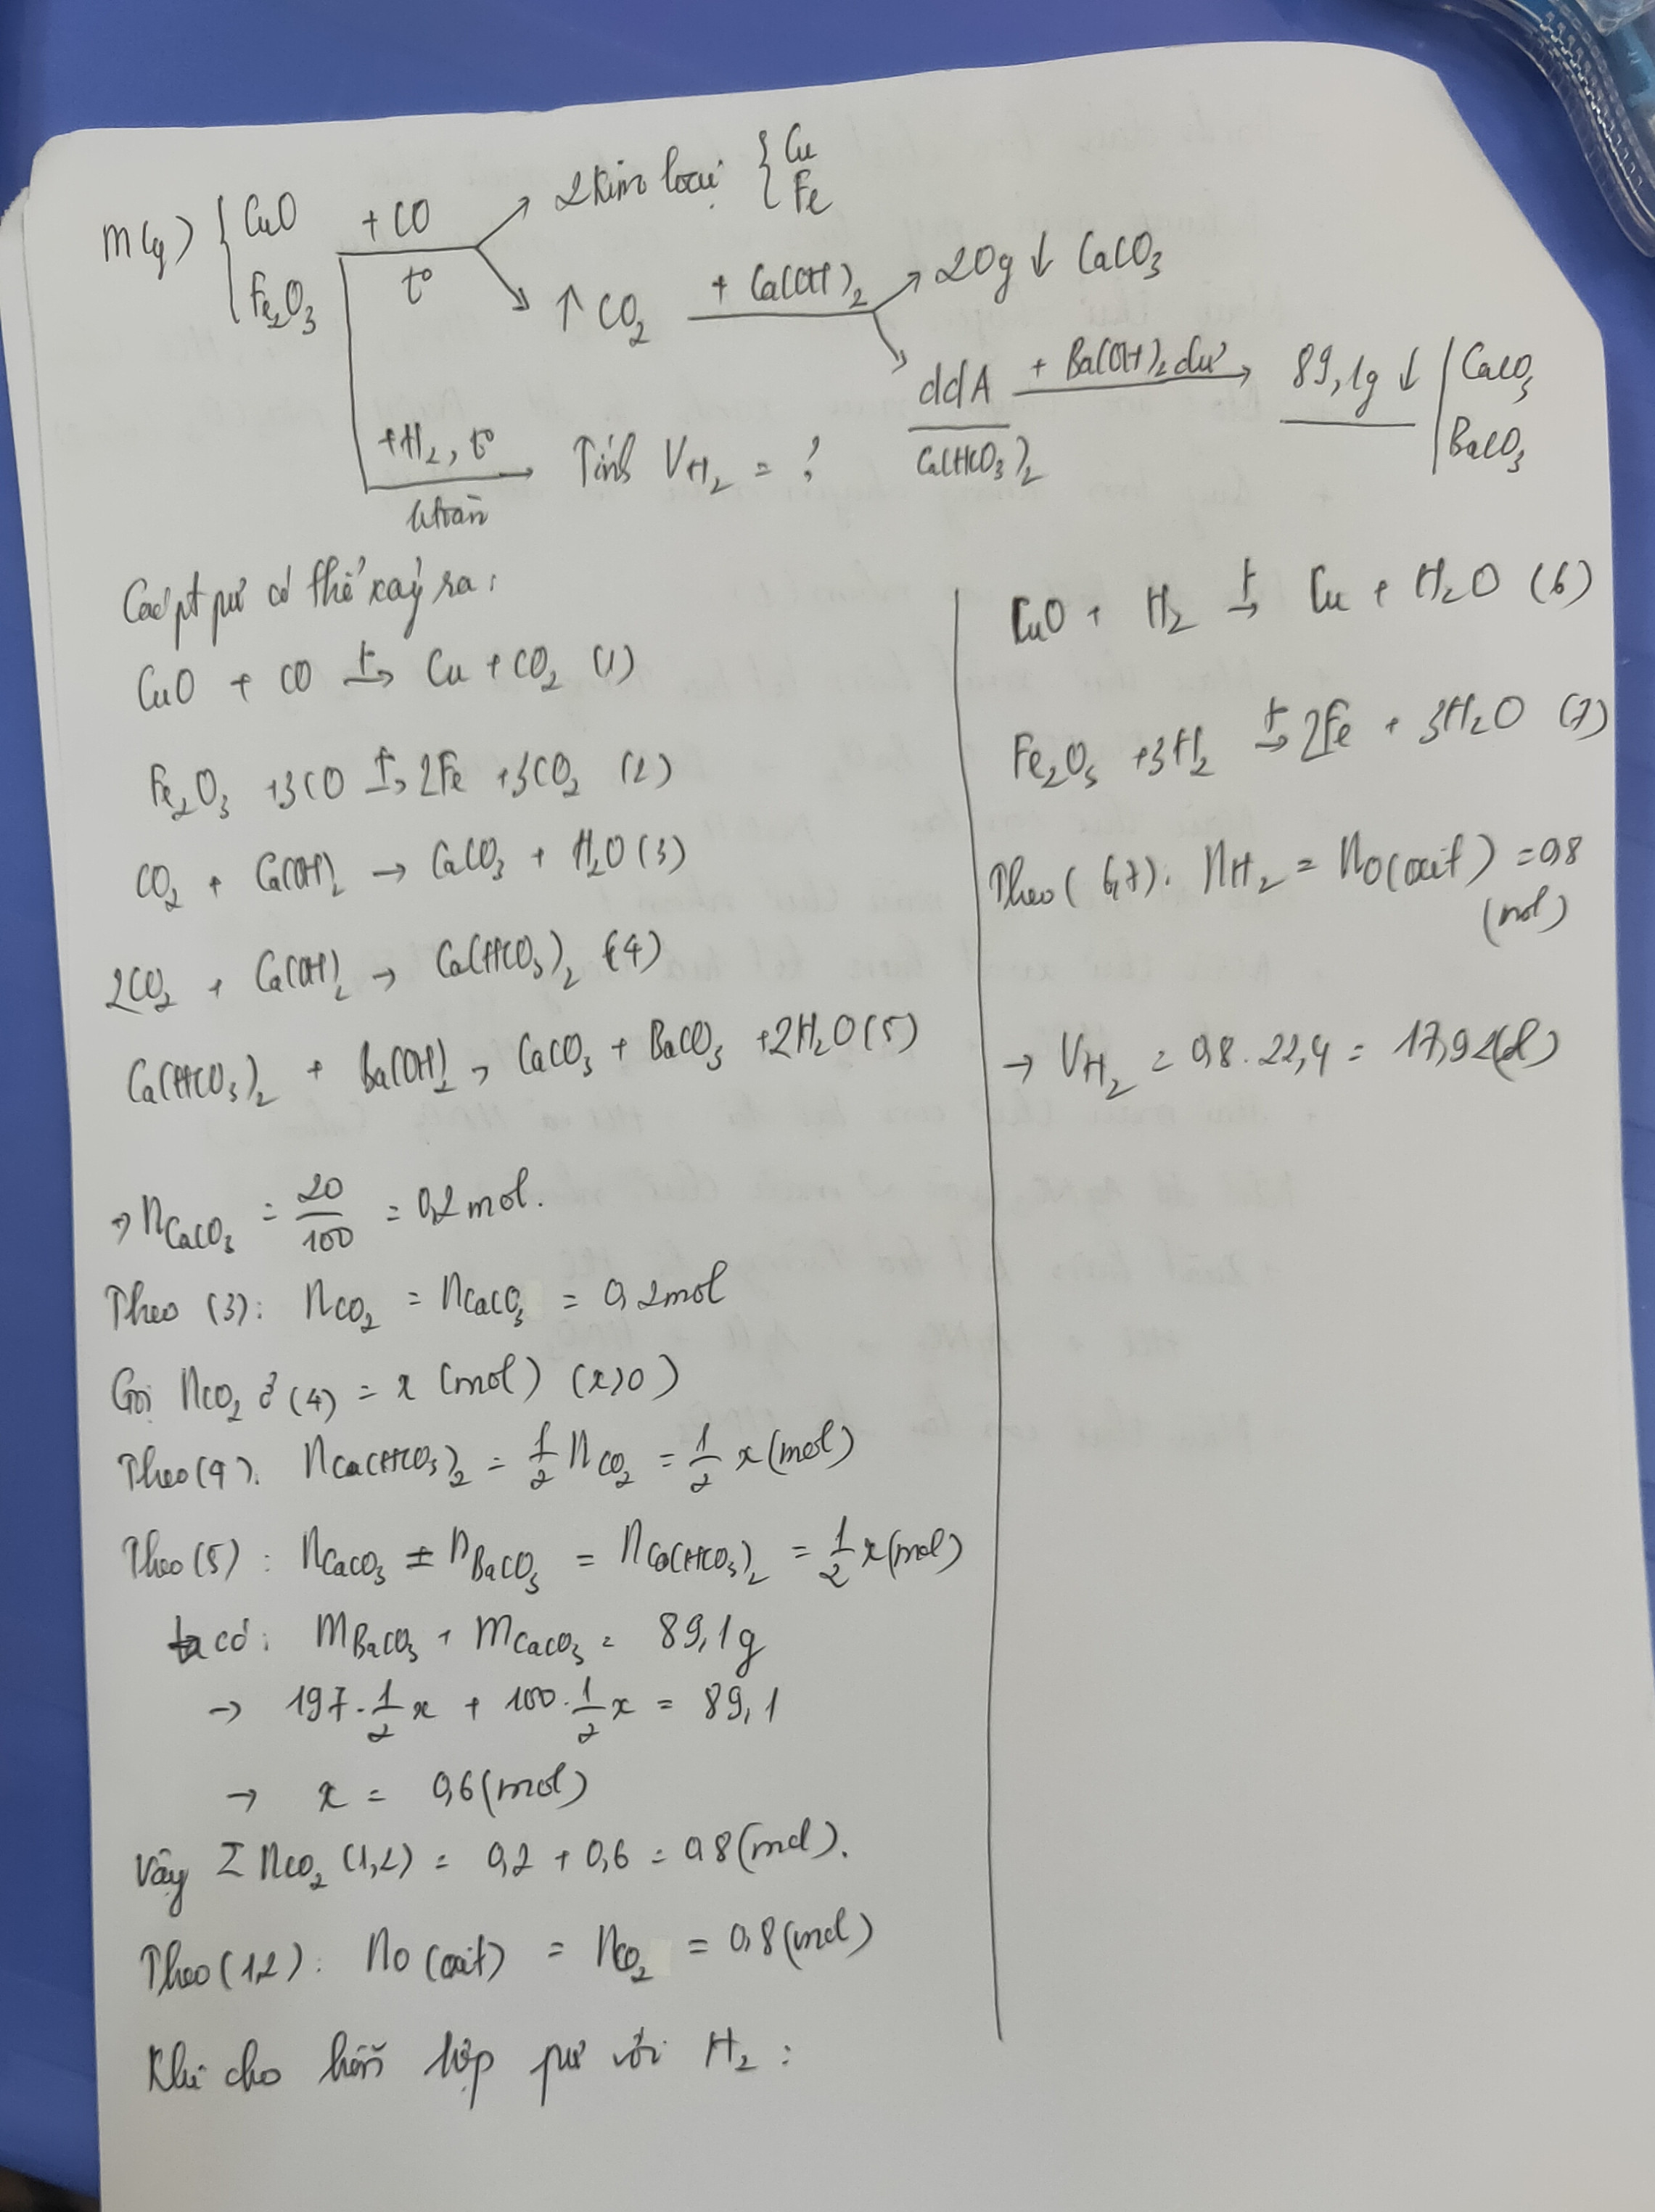 m(g) { CuO Fe₂O₃ + CO t° → 2 kim loại { Cu Fe
↑ CO₂ + Ca(OH)₂ → 20g ↓ CaCO₃
ddA Ca(HCO₃)₂ + Ba(OH)₂ dư → 89,1g ↓ | CaCO₃ BaCO₃
+H₂, t° → Tính V_H₂ = ?
Các pt pư có thể xảy ra:
CuO + CO t→ Cu + CO₂ (1)
Fe₂O₃ +3CO t→ 2Fe +3CO₂ (2)
CO₂ + Ca(OH)₂ → CaCO₃ + H₂O (3)
2CO₂ + Ca(OH)₂ → Ca(HCO₃)₂ (4)
Ca(HCO₃)₂ + Ba(OH)₂ → CaCO₃ + BaCO₃ +2H₂O (5)
→ n_CaCO₃ = 20/100 = 0,2 mol.
Theo (3): n_CO₂ = n_CaCO₃ = 0,2 mol
Gọi n_CO₂ ở (4) = x (mol) (x>0)
Theo (4): n_Ca(HCO₃)₂ = 1/2 n_CO₂ = 1/2 x (mol)
Theo (5): n_CaCO₃ = n_BaCO₃ = n_Ca(HCO₃)₂ = 1/2 x (mol)
ta có: m_BaCO₃ + m_CaCO₃ = 89,1g
→ 197 . 1/2 x + 100 . 1/2 x = 89,1
→ x = 0,6 (mol)
Vậy Σ n_CO₂ (1,2) = 0,2 + 0,6 = 0,8 (mol).
Theo (1,2): n_O (oxit) = n_CO₂ = 0,8 (mol)
Khi cho hỗn hợp pư với H₂:
CuO + H₂ t→ Cu + H₂O (6)
Fe₂O₃ +3H₂ t→ 2Fe + 3H₂O (7)
Theo (6,7): n_H₂ = n_O (oxit) = 0,8
(mol)
→ V_H₂ = 0,8 . 22,4 = 17,92 (l)